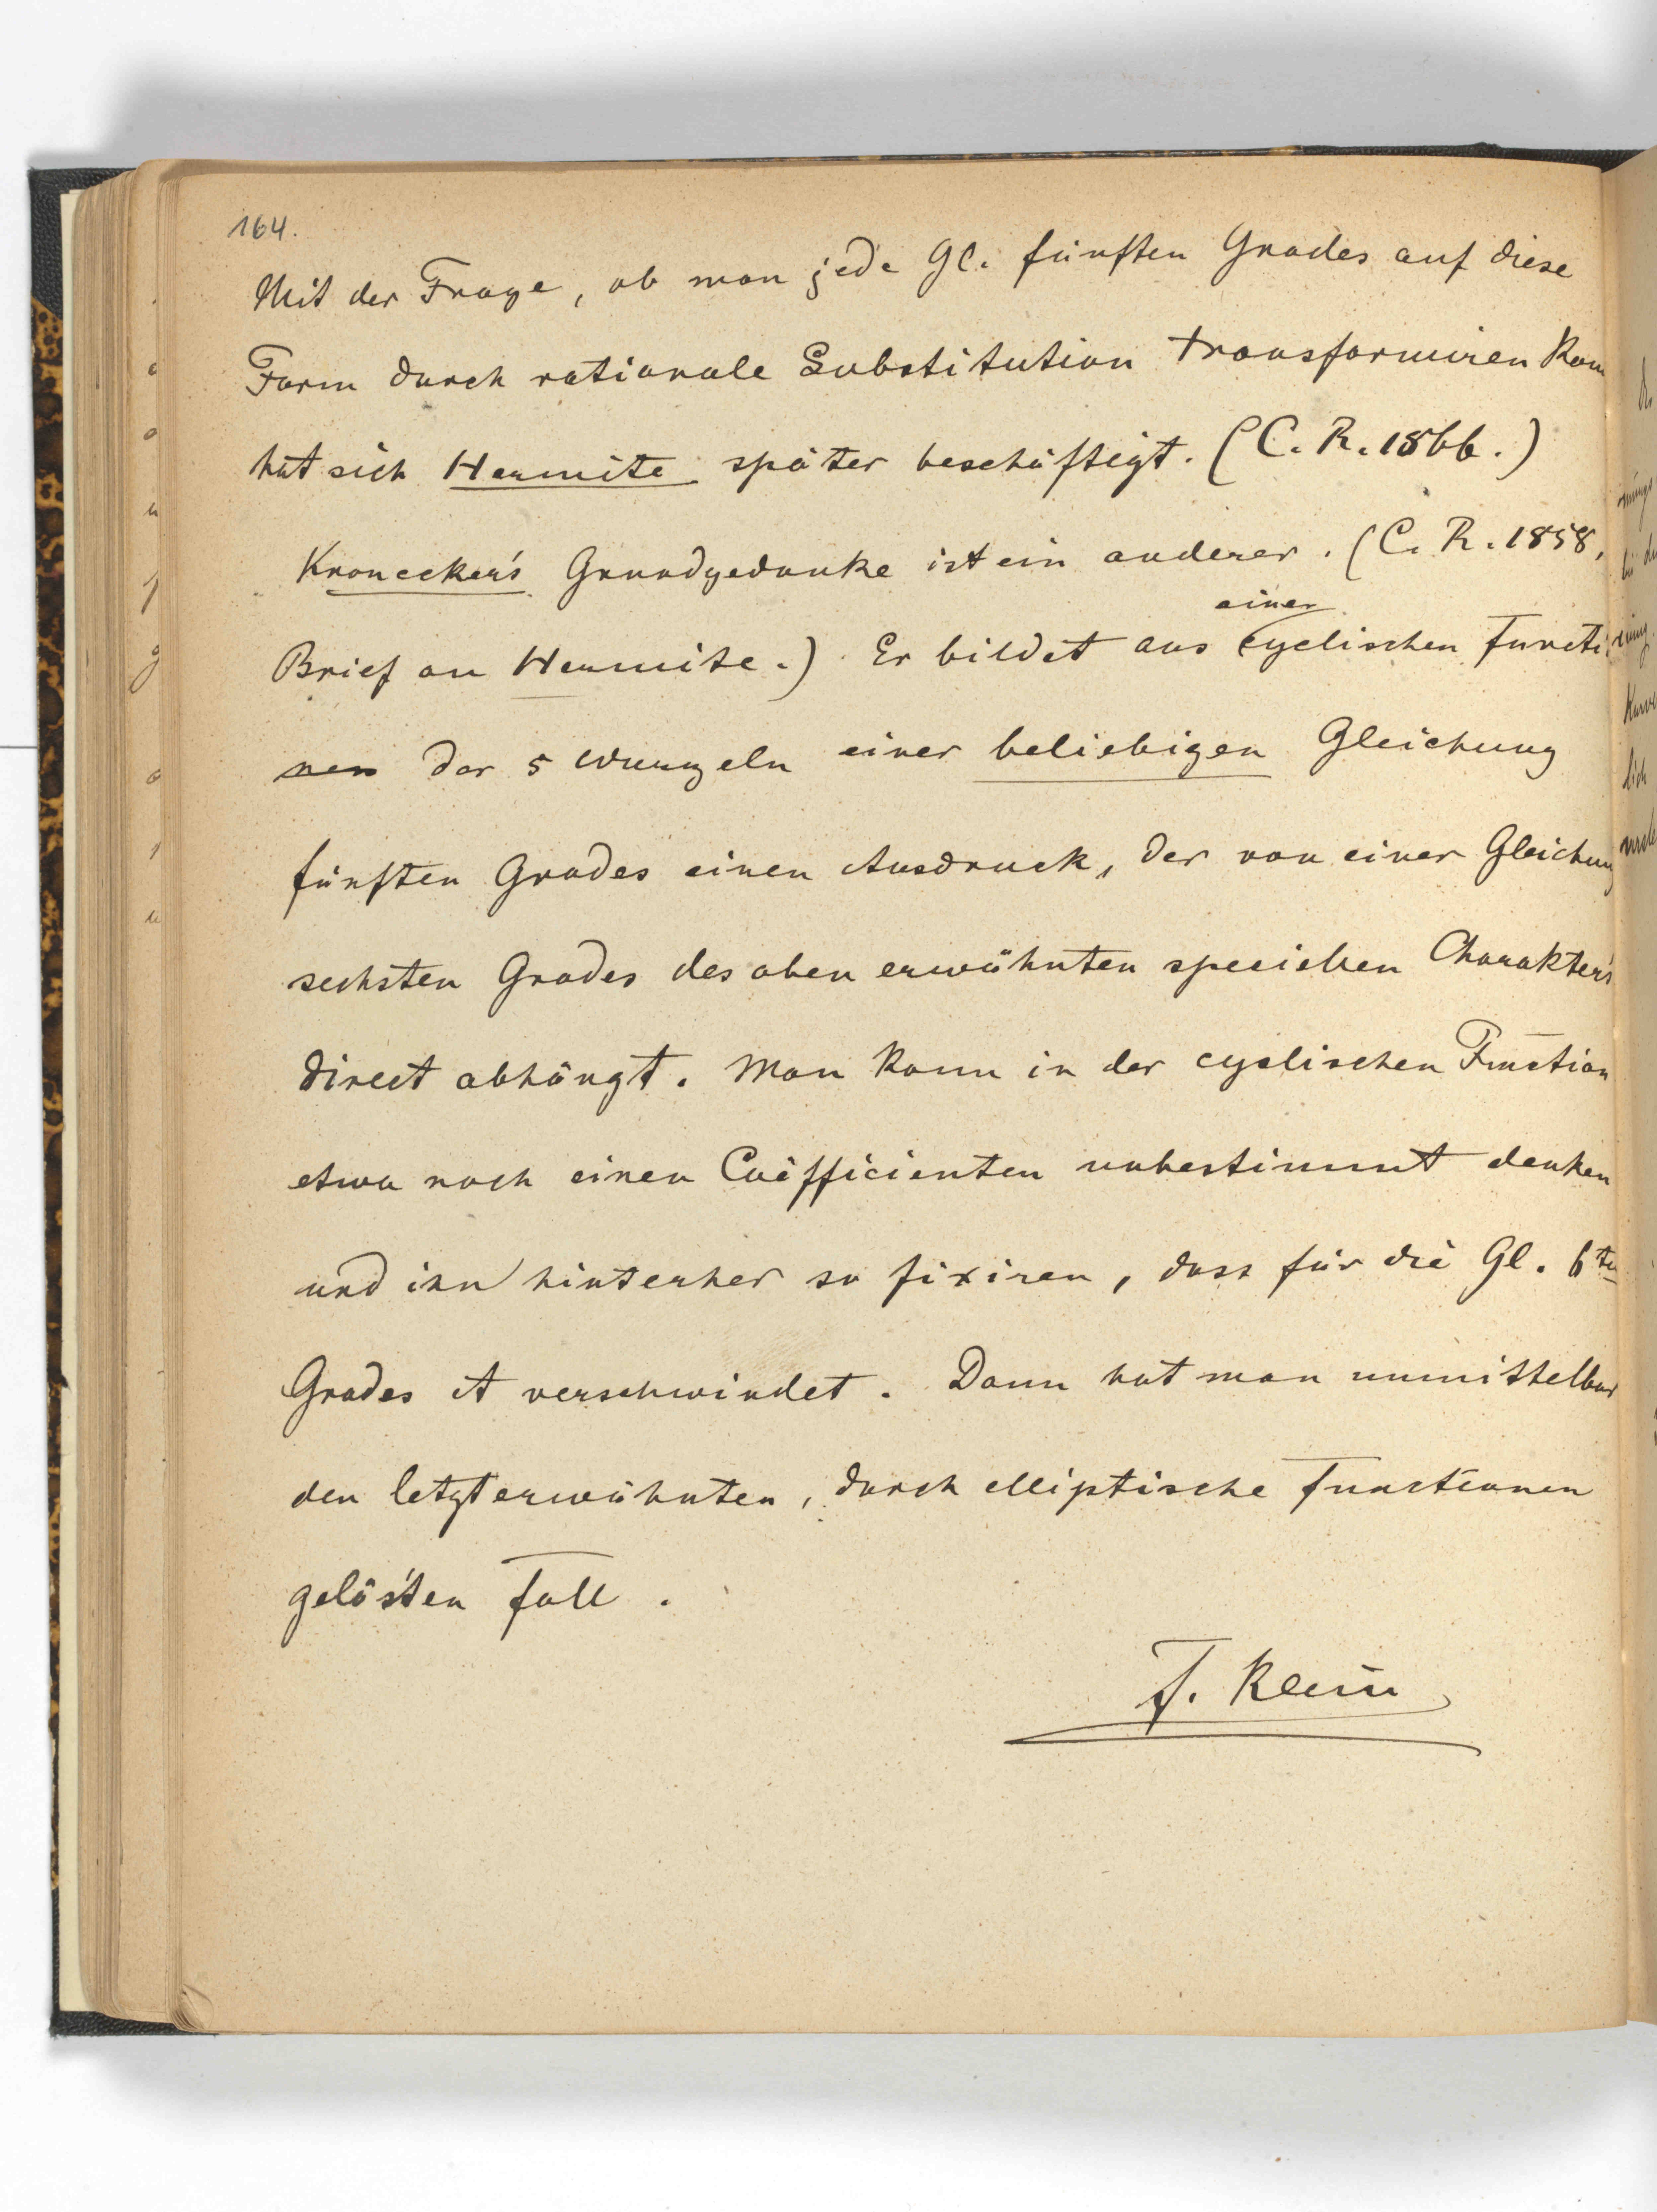 164.
Mit der Frage, ob man jede Gl. fünften Grades auf diese
Form durch rationale Substitution transformiren kann
hat sich Hermite später beschäftigt. (C. R. 1866.)
Kronecker's Grundgedanke ist ein anderer. (C. R. 1858,
Brief an Hermite.) Er bildet aus einer cyclischen Functi
nen der 5 Wurzeln einer beliebigen Gleichung
fünften Grades einen Ausdruck, der von einer Gleichung
sechsten Grades des oben erwähnten speciellen Charakters
direct abhängt. Man kann in der cyclischen Function
etwa noch einen Coëfficienten unbestimmt denken
und ihn hinterher so fixiren, dass für die Gl. 6ten
Grades A verschwindet. Dann hat man unmittelbar
den letzterwähnten, durch elliptische Functionen
gelös'ten Fall.
F. Klein